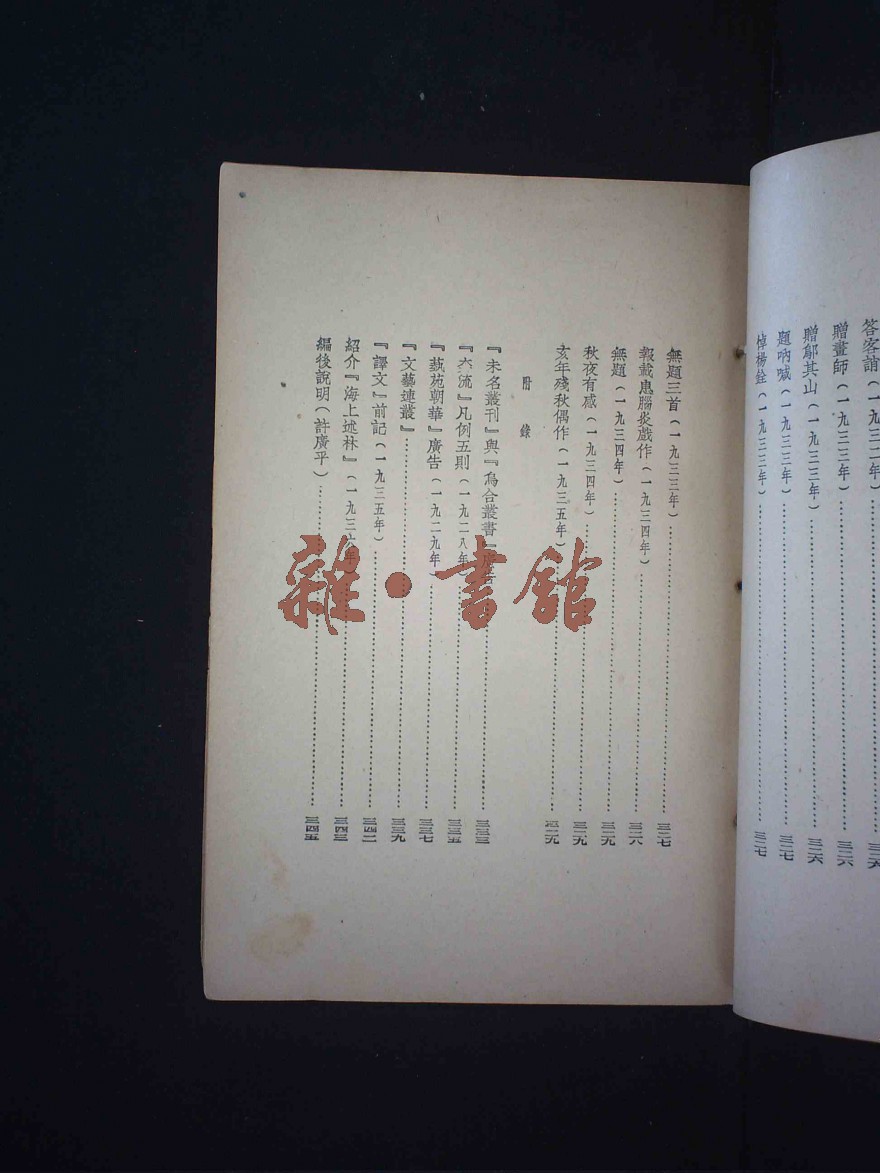 答客誚(一九三二年)…三二六
贈畫師(一九三三年)…三二六
贈鄔其山(一九三三年)…三二六
題吶喊(一九三三年)…三二七
悼楊銓(一九三三年)…三二七
無題三首(一九三三年)…三二七
報載患腦炎戲作(一九三四年)…三二八
無題(一九三四年)…三二九
秋夜有感(一九三四年)…三二九
亥年殘秋偶作(一九三五年)…三二九
附錄
『未名叢刊』與『烏合叢書』廣告…三三三
『奔流』凡例五則(一九二八年)…三三五
『藝苑朝華』廣告(一九二九年)…三三七
『文藝連叢』…三三九
『譯文』前記(一九三五年)…三四二
紹介『海上述林』(一九三六年)…三四三
編後說明(許廣平)…三四五
雜·書館